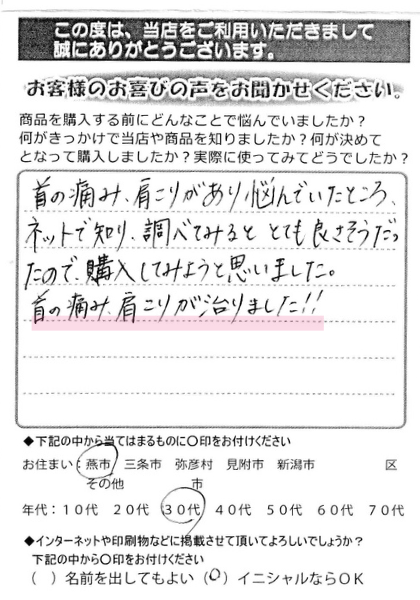 この度は、当店をご利用いただきまして
誠にありがとうございます。
お客様のお喜びの声をお聞かせください。
商品を購入する前にどんなことで悩んでいましたか？
何がきっかけで当店や商品を知りましたか？何が決めて
となって購入しましたか？実際に使ってみてどうでしたか？
首の痛み、肩こりがあり悩んでいたところ、
ネットで知り、調べてみると とても良さそうだっ
たので、購入してみようと思いました。
首の痛み、肩こりが治りました!!
◆下記の中から当てはまるものに〇印をお付けください
お住まい：燕市 三条市 弥彦村 見附市 新潟市 区
その他 市
年代：１０代 ２０代 ３０代 ４０代 ５０代 ６０代 ７０代
◆インターネットや印刷物などに掲載させて頂いてよろしいでしょうか？
下記の中から〇印をお付けください
（ ）名前を出してもよい（〇）イニシャルならＯＫ